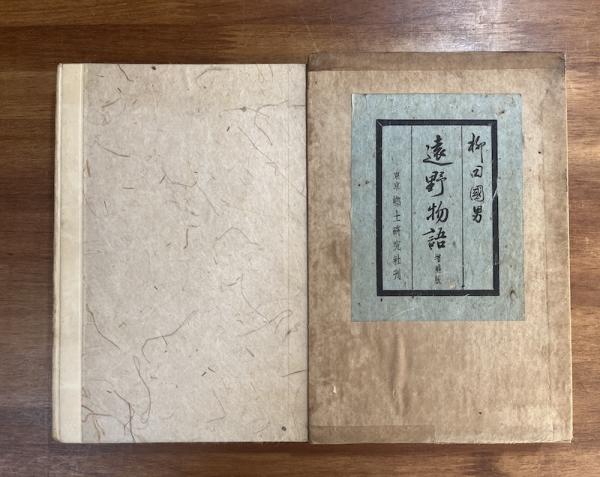 柳田國男
遠野物語 増補版
東京 郷土研究社刊